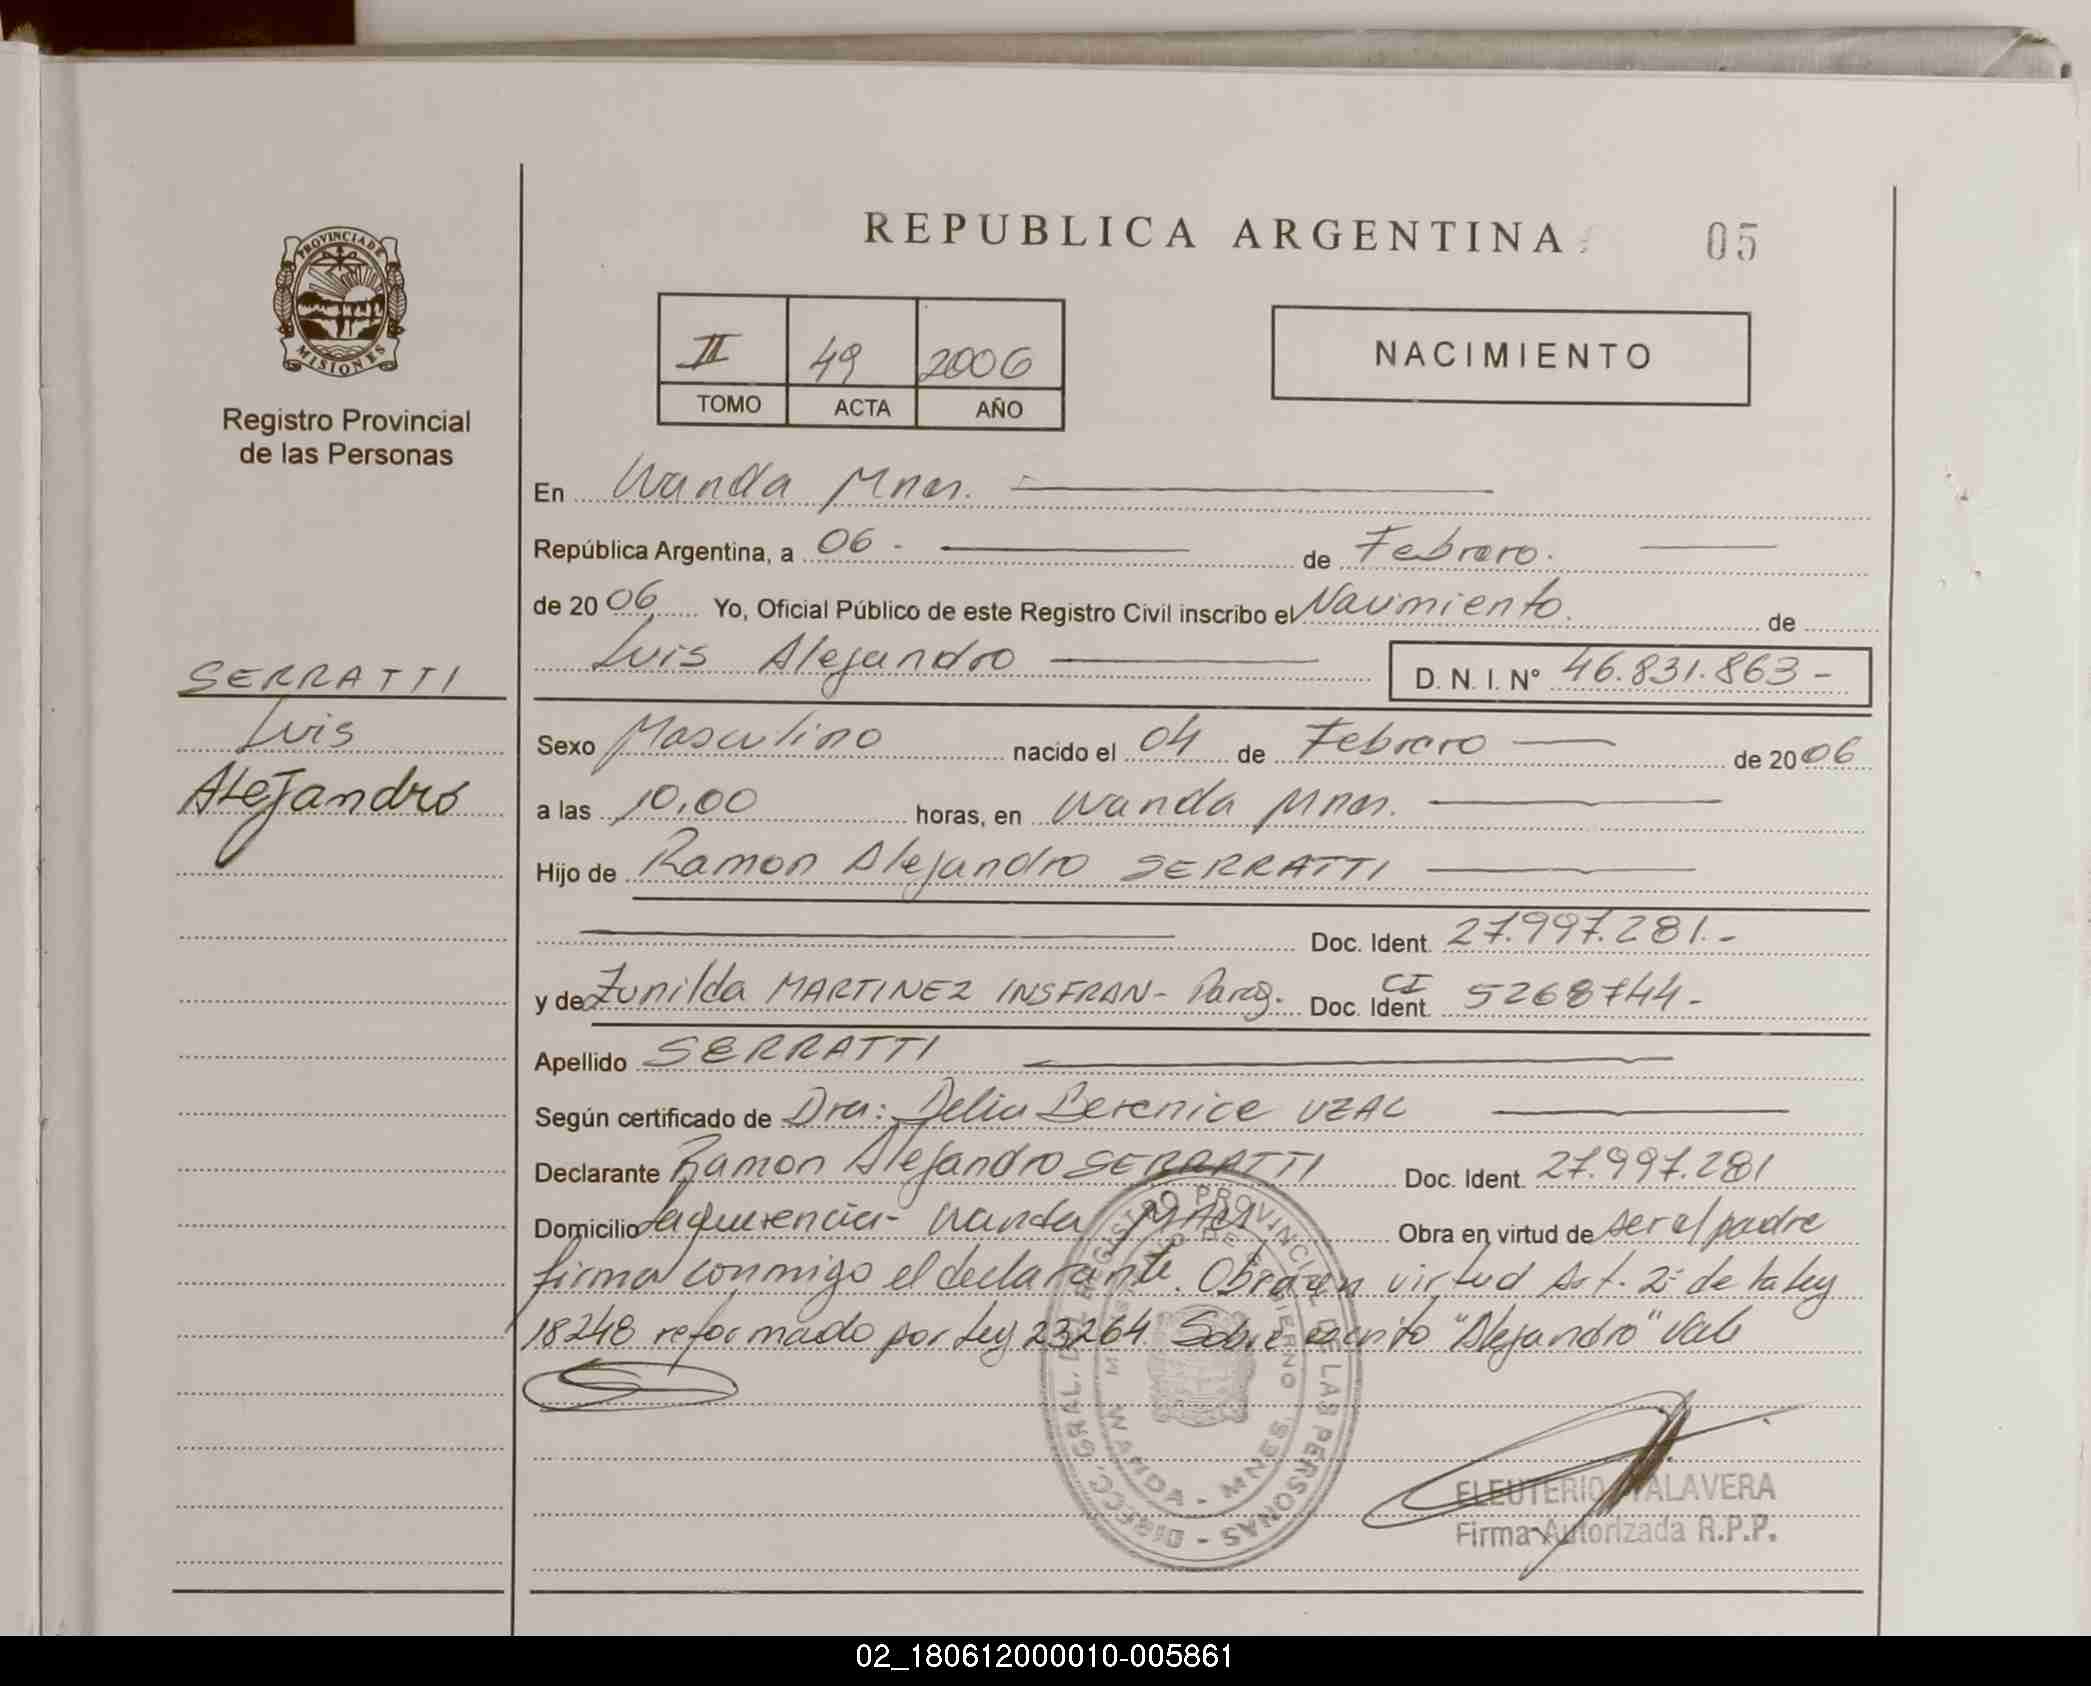 REPUBLICA ARGENTINA
05
PROVINCIA DE
MISIONES
Registro Provincial
de las Personas
II 49 2006
TOMO ACTA AÑO
NACIMIENTO
En Wanda Mnes.
República Argentina, a 06 - de Febrero.
de 20 06 Yo, Oficial Público de este Registro Civil inscribo el Nacimiento. de
Luis Alejandro D. N. I. Nº 46.831.863-
SERRATTI
Luis
Alejandro
Sexo Masculino nacido el 04 de Febrero de 20 06
a las 10,00 horas, en Wanda Mnes.
Hijo de Ramon Alejandro SERRATTI
Doc. Ident. 27.997.281.-
y de Zunilda MARTINEZ INSFRAN- Parg. Doc. Ident. CI 5268744-
Apellido SERRATTI
Según certificado de Dra: Delia Berenice UZAL
Declarante Ramon Alejandro SERRATTI Doc. Ident. 27.997.281
Domicilio Laquerencia- Wanda Obra en virtud de ser el padre
firma conmigo el declarante. Obra en virtud Art. 2º de la Ley
18248 reformado por Ley 23264. Sobre escrito "Alejandro" Vale
DIRECC. GRAL. DEL REGISTRO PROVINCIAL DE LAS PERSONAS -
WANDA - MNES.
ELEUTERIO TALAVERA
Firma Autorizada R.P.P.
02_180612000010-005861